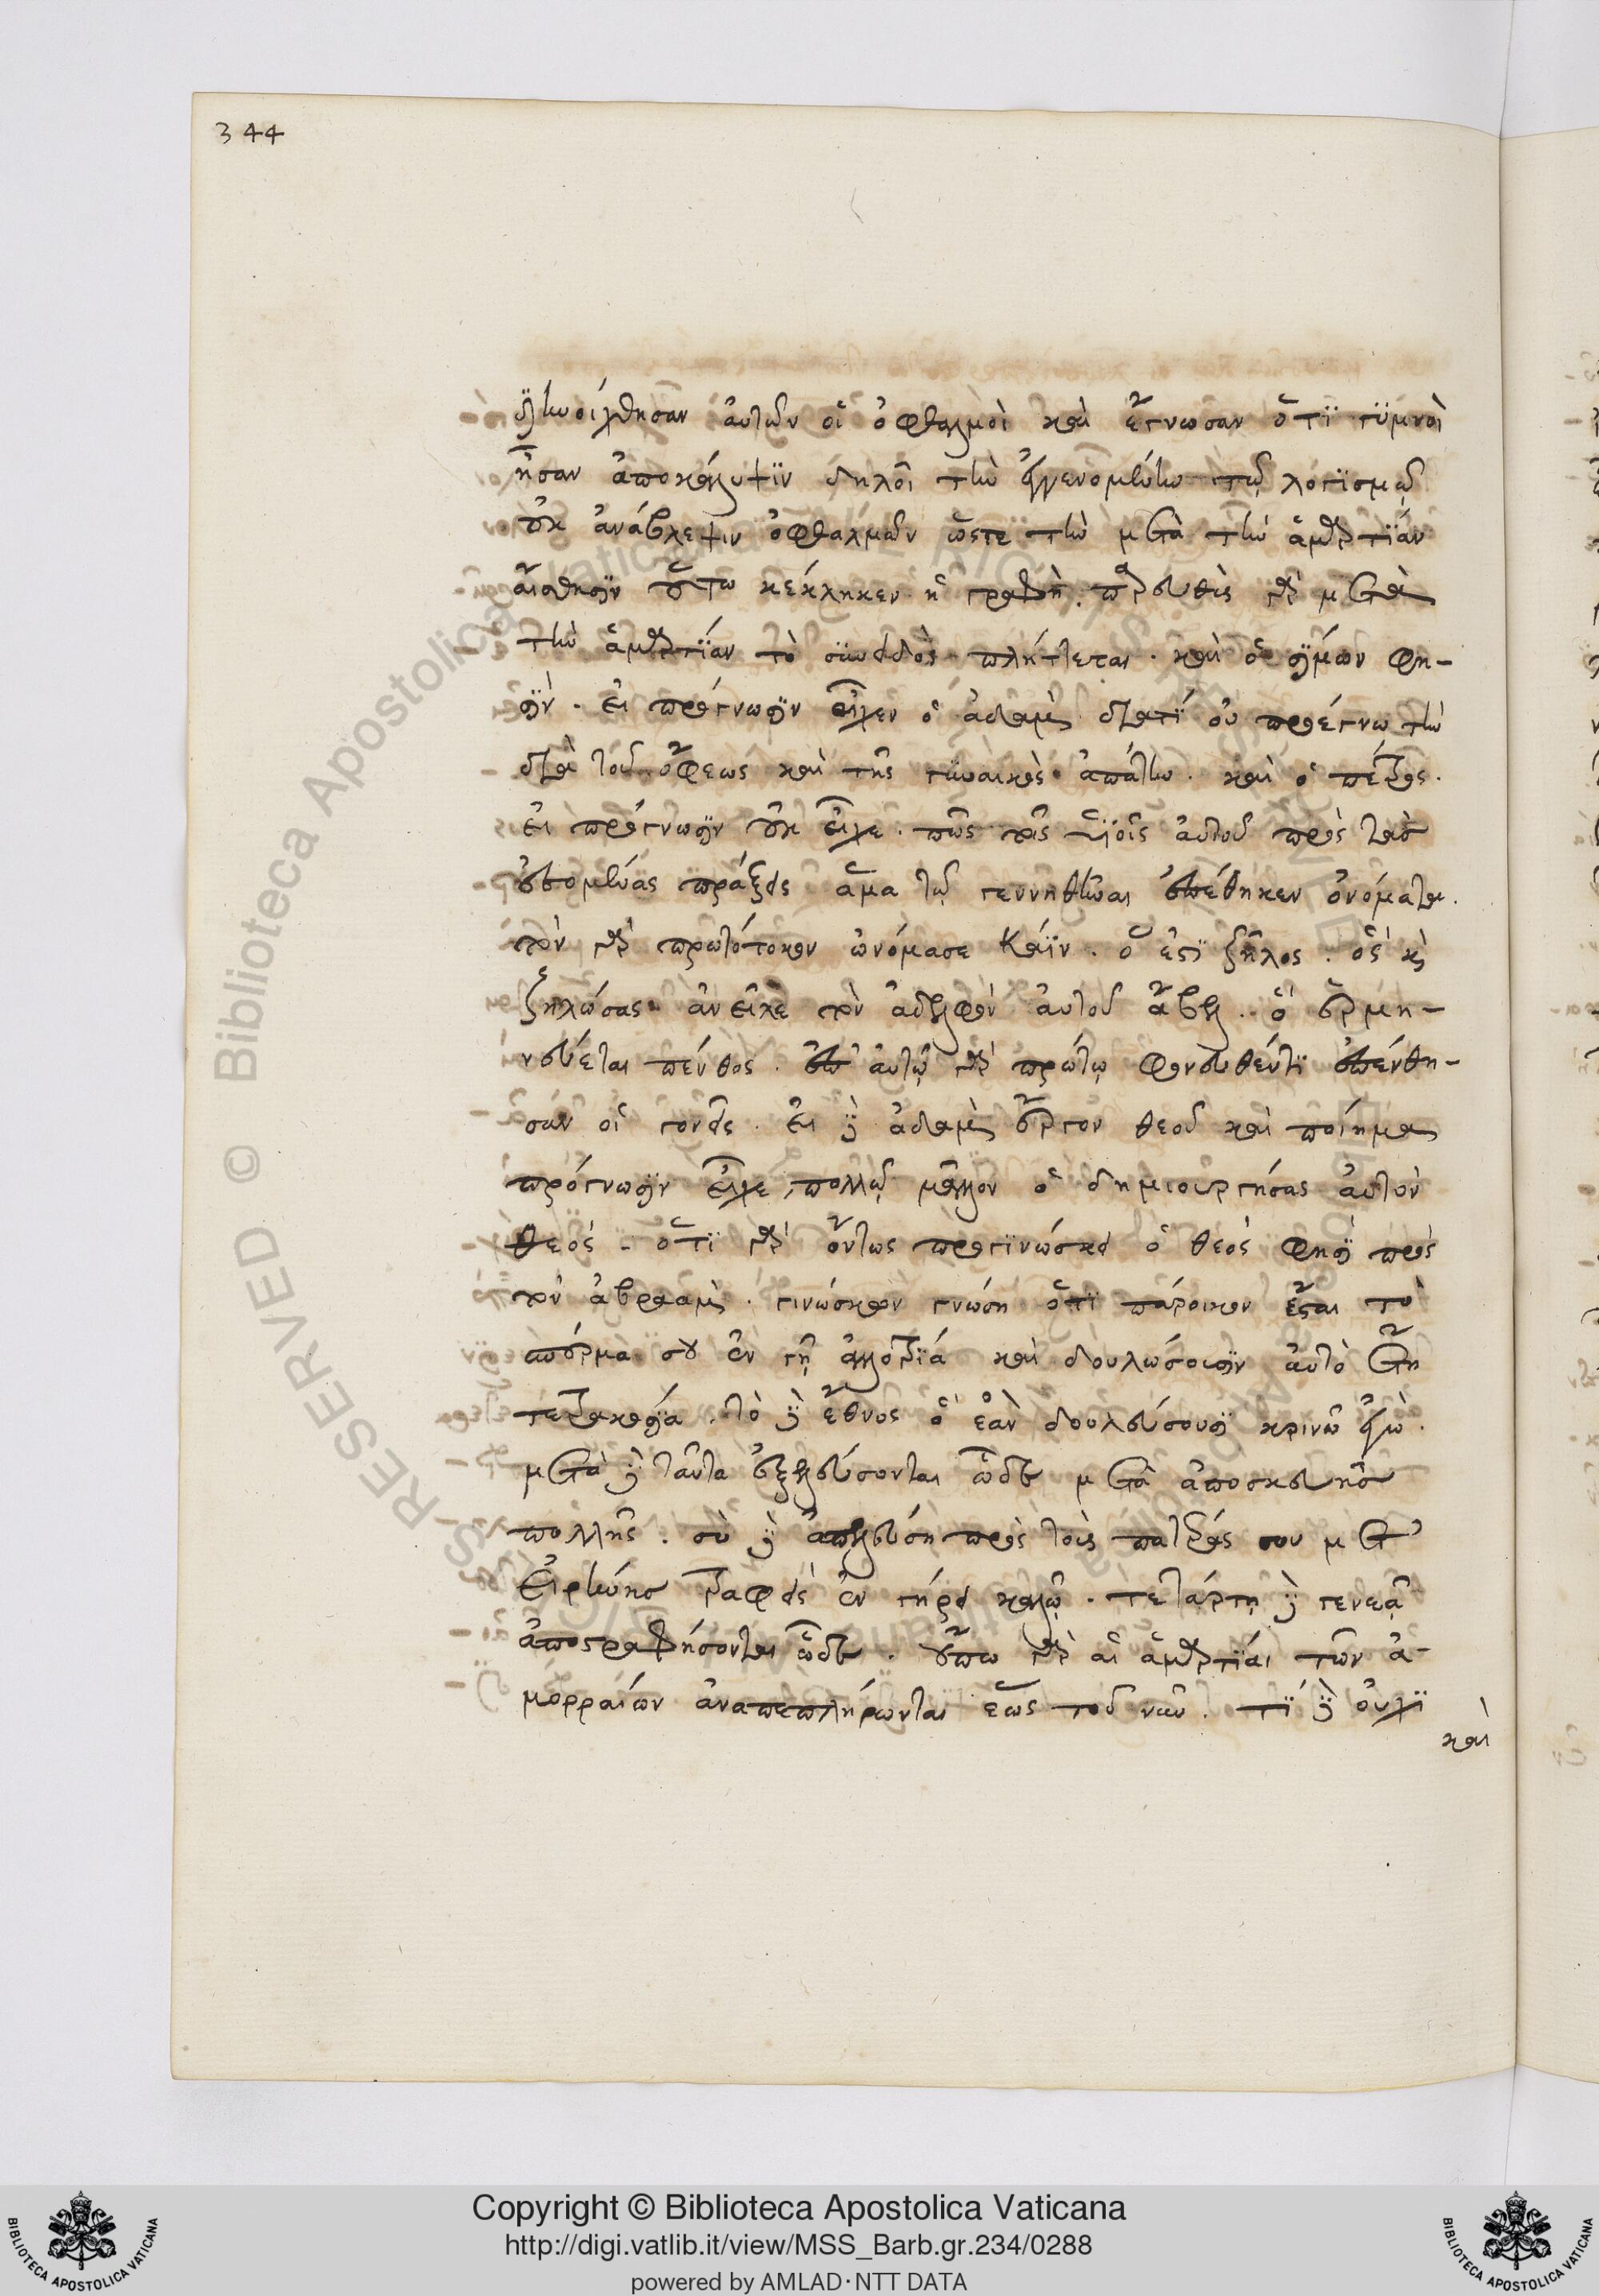 344
διηνοίχθησαν αὐτῶν οἱ ὀφθαλμοὶ καὶ ἔγνωσαν ὅτι γυμνοὶ
ἦσαν ἀποκάλυψιν δηλοῖ τὴν ἐγγενομένην τῷ λογισμῷ
οὐκ ἀνάβλεψιν ὀφθαλμῶν ὥστε τὴν μετὰ τὴν ἁμαρτίαν
αἴσθησιν οὕτω κέκληκεν ἡ γραφὴ. παρευθὺς γὰρ μετὰ
τὴν ἁμαρτίαν τὸ συνειδὸς πλήττεται. καὶ ὁ σίμων φη-
σὶν. εἰ πρόγνωσιν εἶχεν ὁ ἀδαμ διατί οὐ προέγνω τὴν
διὰ τοῦ ὄφεως καὶ τῆς γυναικὸς ἀπάτην. καὶ ὁ πέτρος.
εἰ πρόγνωσιν οὐκ εἶχε. πῶς τοῖς υἱοῖς αὐτοῦ πρὸς τὰς
ἐσομένας πράξεις ἅμα τῷ γεννηθῆναι ἐπέθηκεν ὀνόματα.
τὸν γὰρ πρωτότοκον ὠνόμασε Κάϊν. ὅ ἐστι ζῆλος. ὃς καὶ
ζηλώσας ἀνεῖλε τὸν ἀδελφὸν αὐτοῦ ἄβελ. ὃ ἑρμη-
νεύεται πένθος. ἐπ' αὐτῷ γὰρ πρώτῳ φονευθέντι ἐπένθη-
σαν οἱ γονεῖς. εἰ δὲ ἀδαμ ἔργον θεοῦ καὶ ποίημα
πρόγνωσιν εἶχε, πολλῷ μᾶλλον ὁ δημιουργήσας αὐτὸν
θεός. ὅτι γὰρ ὄντως προγινώσκει ὁ θεός φησὶ πρὸς
τὸν ἀβραὰμ. γινώσκων γνώσῃ ὅτι πάροικον ἔσται τὸ
σπέρμα σου ἐν γῇ ἀλλοτρία καὶ δουλώσουσιν αὐτὸ ἔτη
τετρακόσια. τὸ δὲ ἔθνος ὃ ἐὰν δουλεύσουσι κρινῶ ἐγὼ.
μετὰ δὲ ταῦτα ἐξελεύσονται ὧδε μετὰ ἀποσκευῆς
πολλῆς. σὺ δὲ ἀπελεύσῃ πρὸς τοὺς πατέρας σου μετ'
εἰρήνης ταφεὶς ἐν γήρει καλῷ. τετάρτῃ δὲ γενεᾷ
ἀποστραφήσονται ὧδε. οὔπω γὰρ αἱ ἁμαρτίαι τῶν ἀ-
μορραίων ἀναπεπλήρωνται ἕως τοῦ νῦν. τί δὲ οὐχὶ
καὶ
Copyright © Biblioteca Apostolica Vaticana
http://digi.vatlib.it/view/MSS_Barb.gr.234/0288
powered by AMLAD·NTT DATA